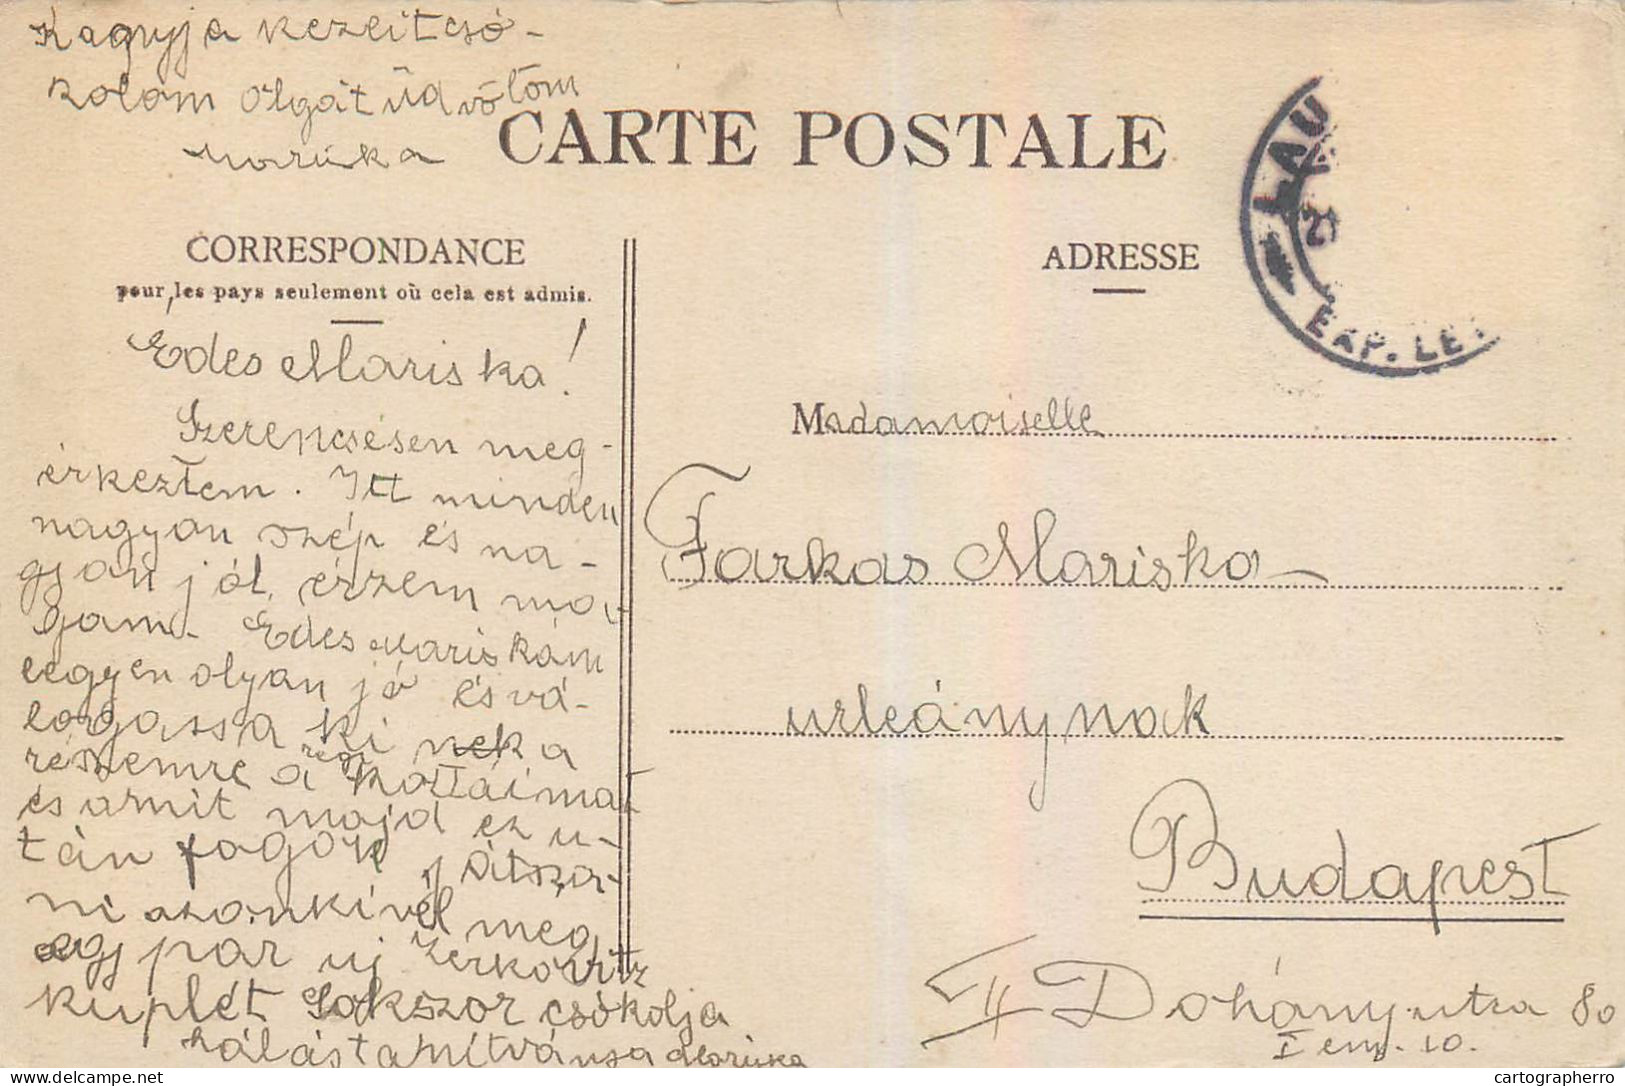 Nagyja kezeit csó-
kolom Olgát üdvözlöm
Mariska
CARTE POSTALE
CORRESPONDANCE
pour les pays seulement où cela est admis.
ADRESSE
LAU
EXP. LE
Edes Mariska!
Szerencsésen meg-
érkeztem. Itt minden
nagyon szép és na-
gyon jól érzem ma-
gam. Edes Mariskám
legyen olyan jó és vá-
logassa ki nek a
részemre a régi kottáimat
és amit majd ez u-
tán fogok játsza-
ni azonkivél meg
egy par uj Zerkovitz
kuplét Sokszor csókolja
hálás tanítványa Mariska
Madamoiselle
Farkas Mariska
urleánynak
Budapest
VII Dohány utza 80
I em. 10.
cartographerro